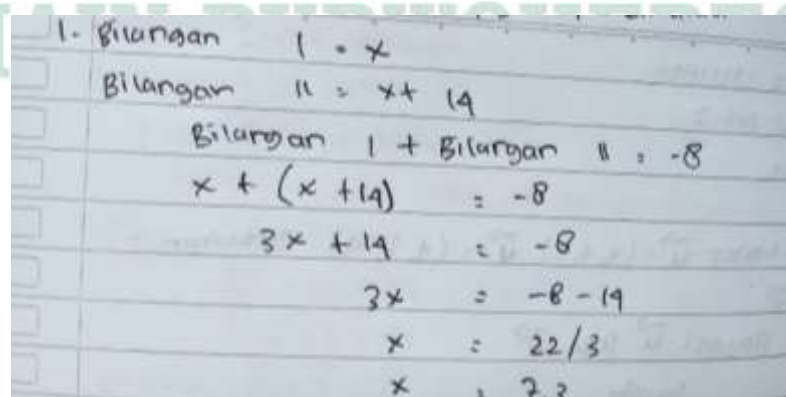 1. Bilangan I = x
Bilangan II = x + 14
Bilangan I + Bilangan II = -8
x + (x + 14) = -8
3x + 14 = -8
3x = -8 - 14
x = 22/3
x = 7,3